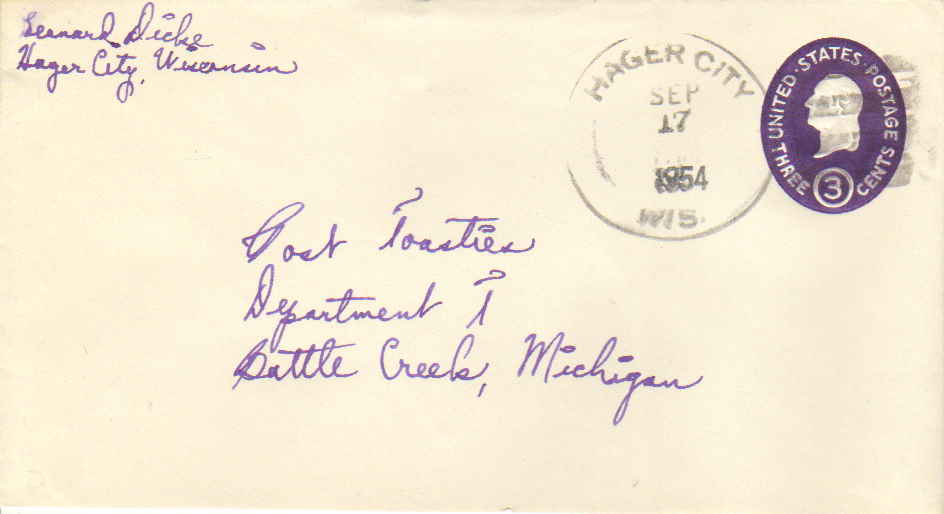 Bernard Dicke
Hager City, Wisconsin
HAGER CITY
SEP
17
1954
WIS.
UNITED·STATES·POSTAGE
THREE 3 CENTS
Post Toasties
Department T
Battle Creek, Michigan